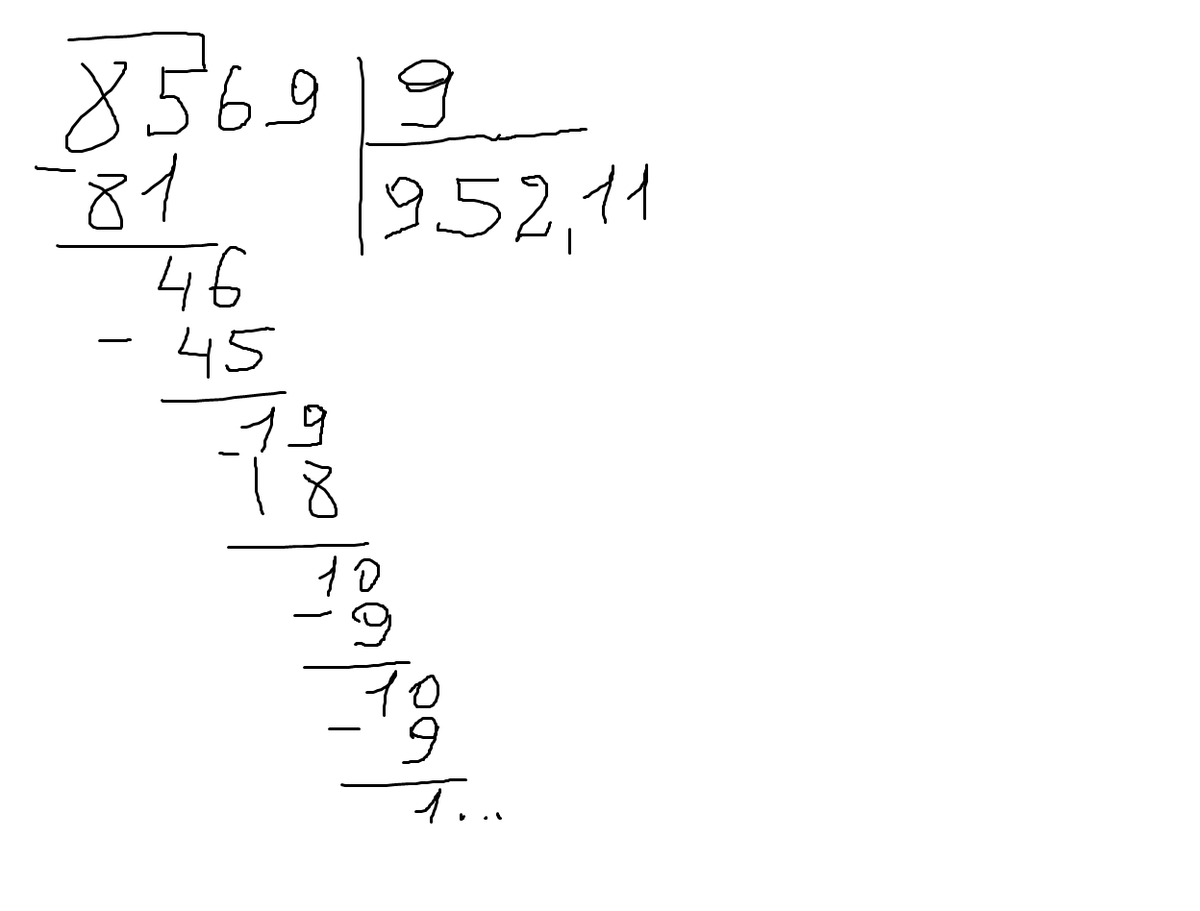 8569 9
- 81 952,11
46
- 45
19
- 18
10
- 9
10
- 9
1...